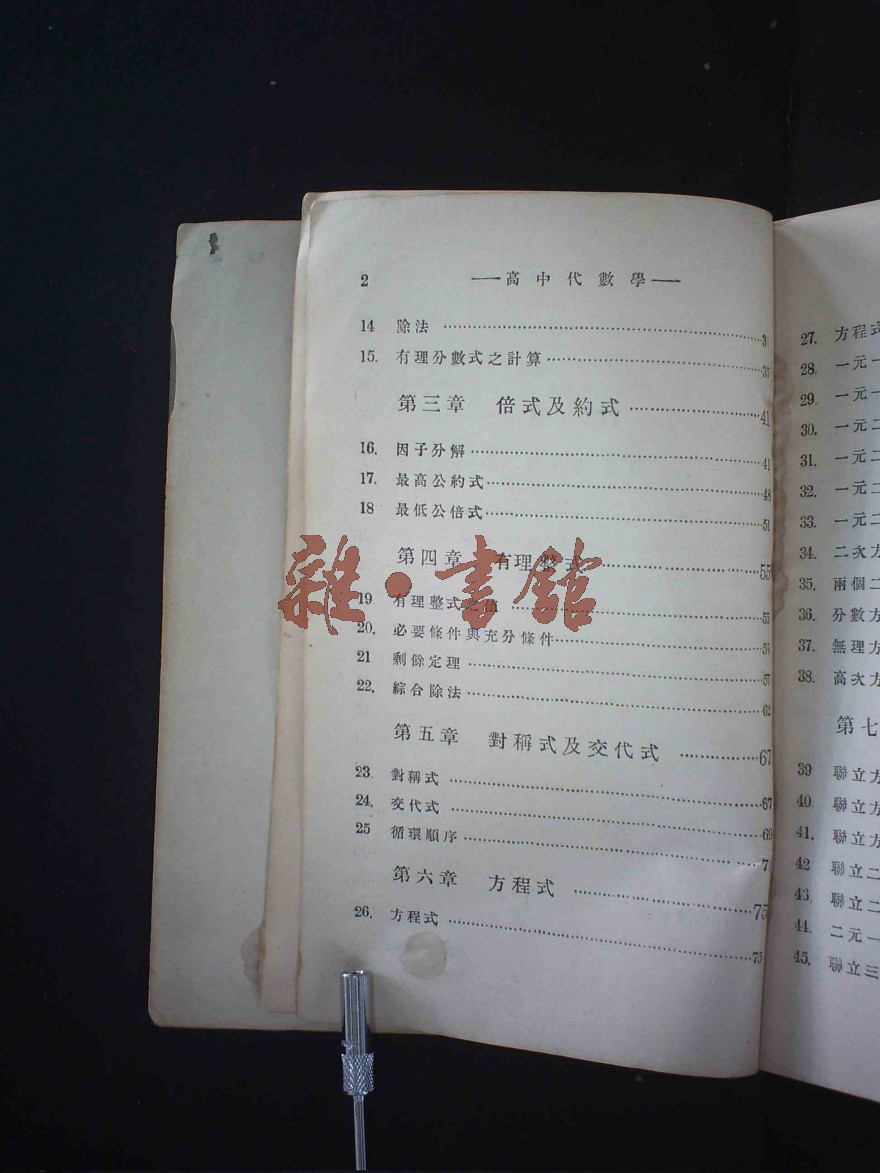 2 ——高中代數學——
14 除法 ……3
15. 有理分數式之計算……37
第三章 倍式及約式……41
16. 因子分解……41
17. 最高公約式……48
18 最低公倍式……51
第四章 有理整式……55
19 有理整式之值……55
20. 必要條件與充分條件……56
21 剩餘定理……57
22. 綜合除法……62
第五章 對稱式及交代式……67
23. 對稱式……67
24. 交代式……69
25 循環順序……7
第六章 方程式……75
26. 方程式……75
雜·書館
27. 方程式
28. 一元一
29. 一元一
30. 一元二
31. 一元二
32. 一元二
33. 一元二
34. 二次方
35. 兩個二
36. 分數方
37. 無理方
38. 高次方
第七
39 聯立方
40. 聯立方
41. 聯立方
42 聯立二
43. 聯立二
44. 二元一
45. 聯立三